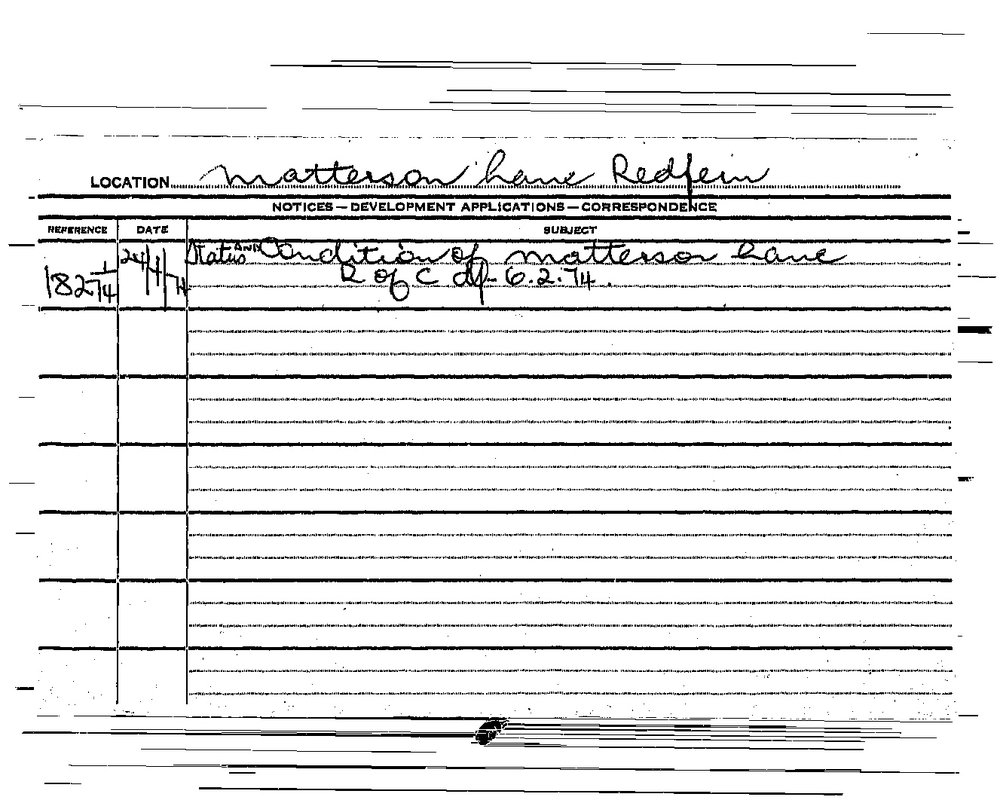 LOCATION Matterson Lane Redfern
NOTICES — DEVELOPMENT APPLICATIONS — CORRESPONDENCE
REFERENCE DATE SUBJECT
182 1/74 24/1/74 Status AND Condition of Matterson Lane
R of C df 6.2.74.